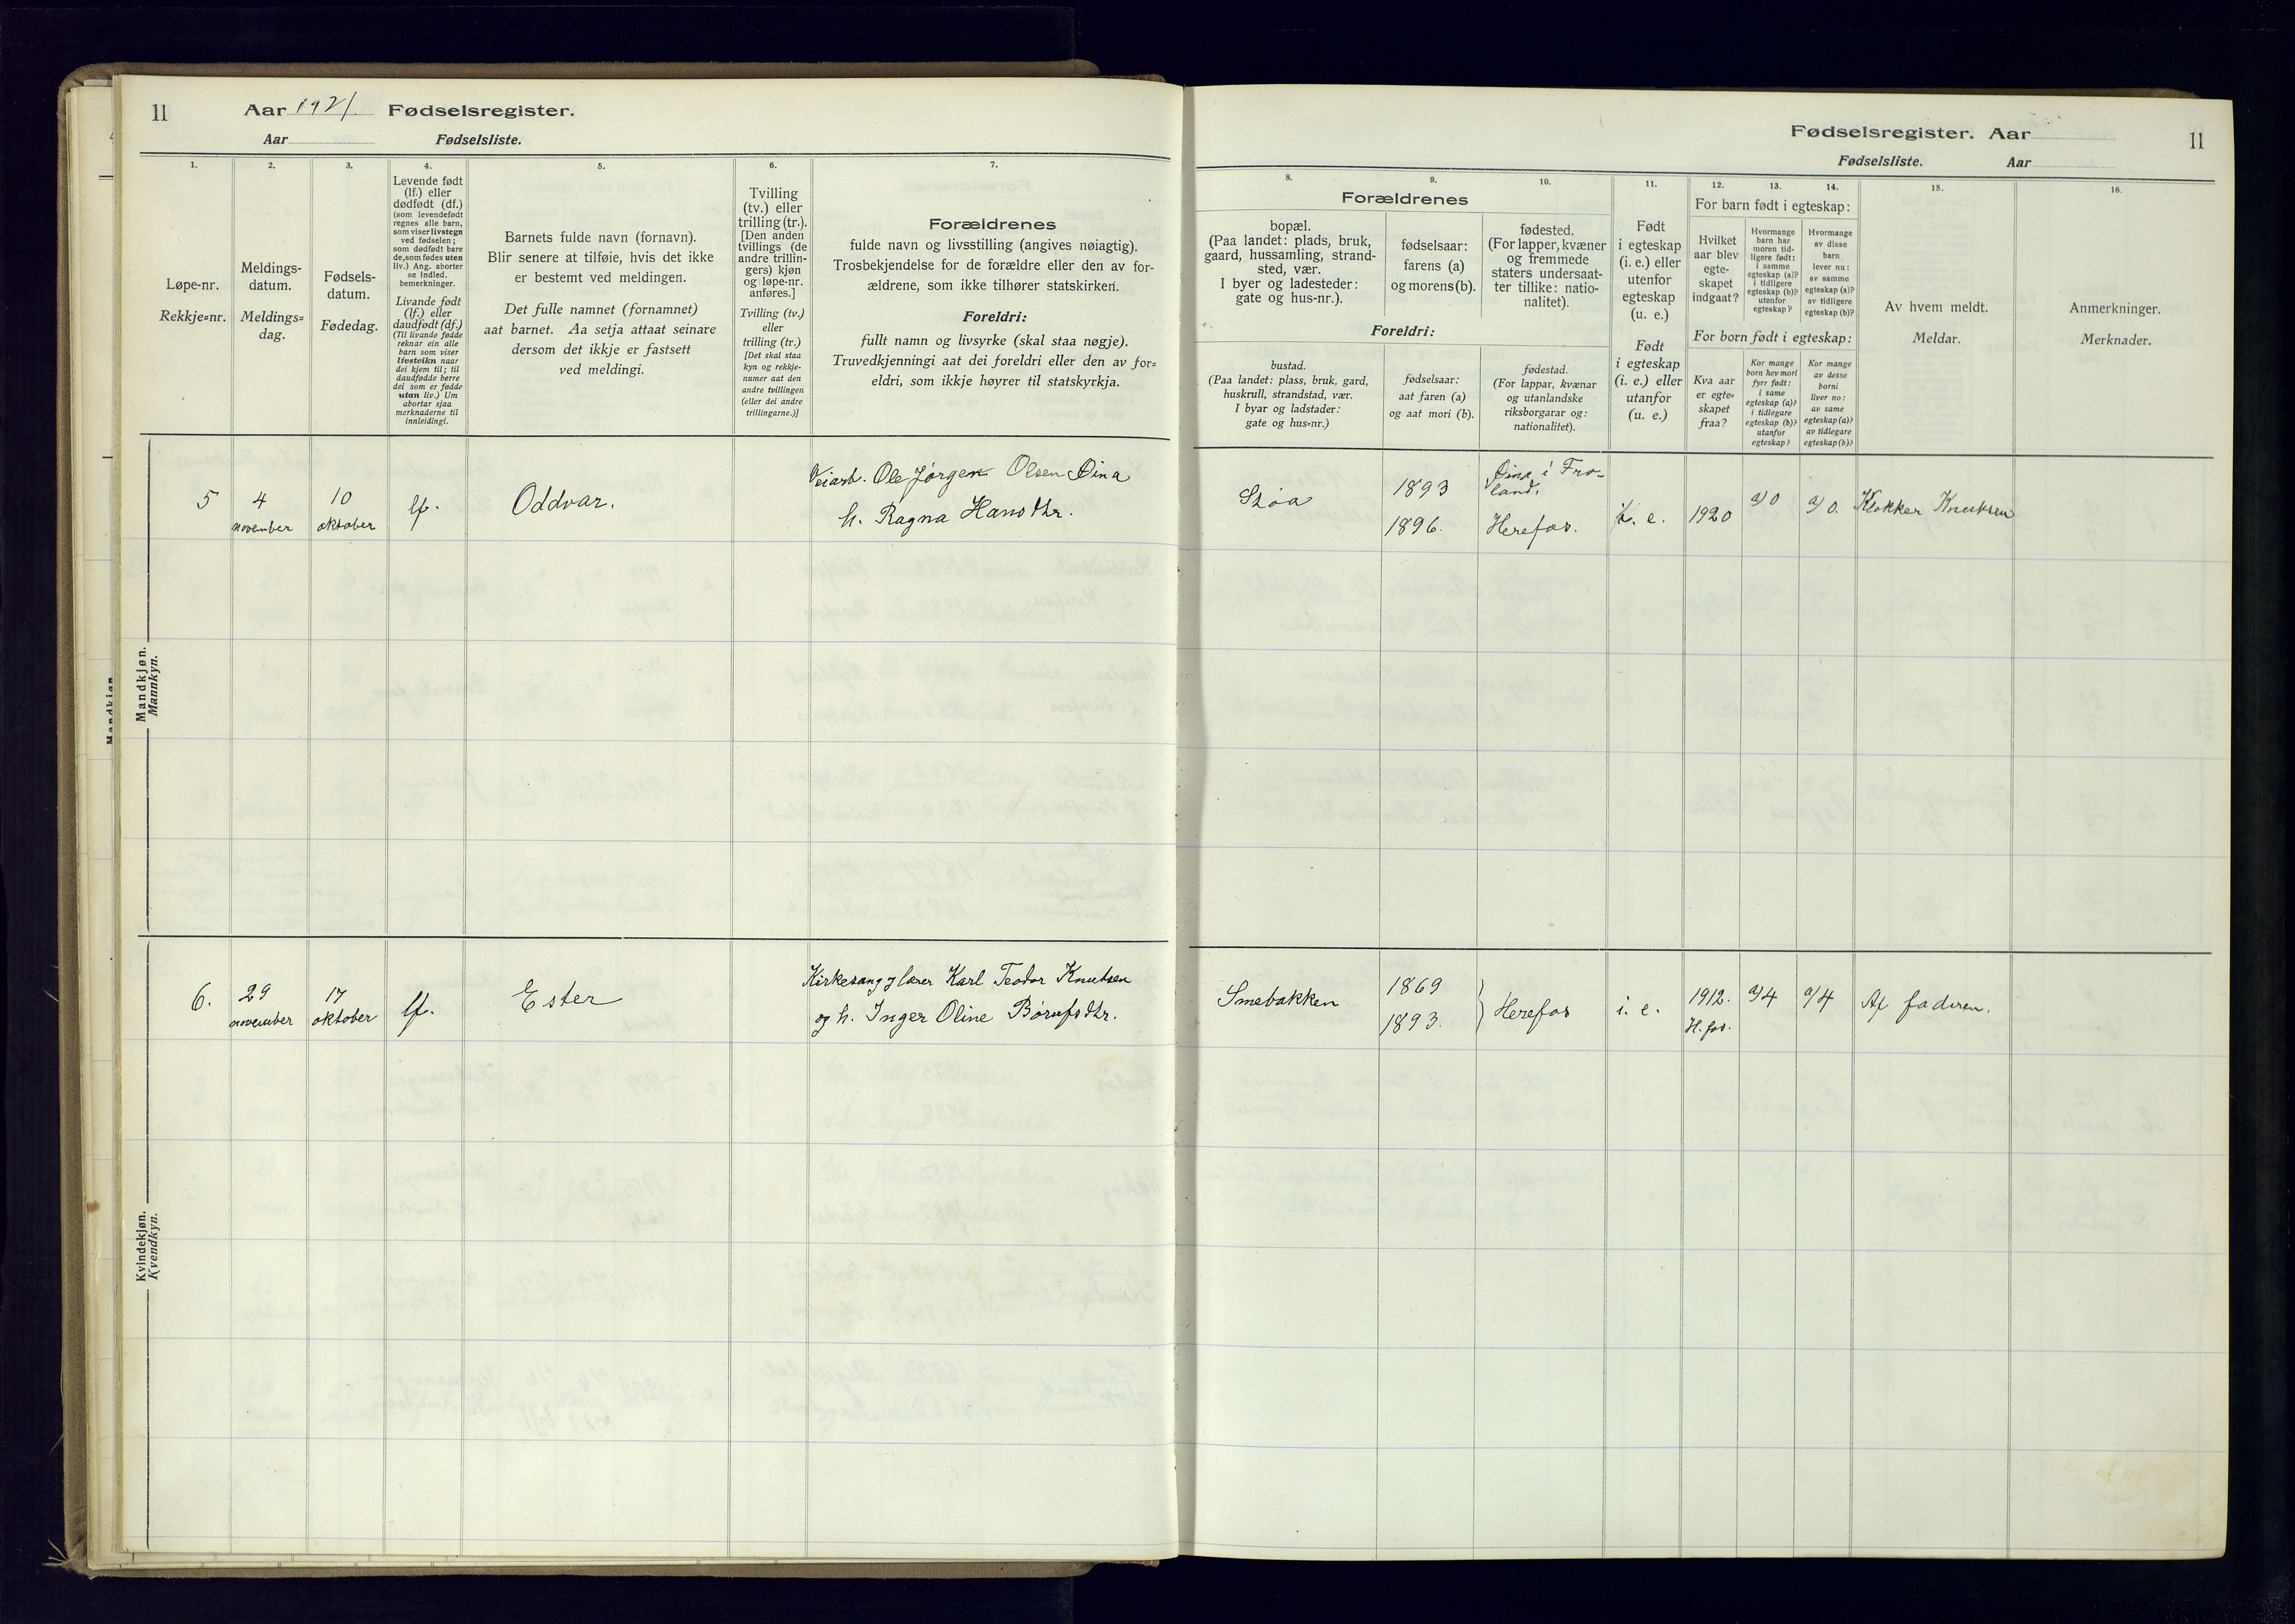 11
Aar 1921 Fødselsregister.
Aar Fødselsliste.
1.
Løpe-nr.
Rekkje=nr.
2.
Meldings-
datum.
Meldings=
dag.
3.
Fødsels-
datum.
Fødedag.
4.
Levende født
(lf.) eller
dødfødt (df.)
(som levendefødt
regnes alle barn,
som viser livstegn
ved fødselen;
som dødfødt bare
de, som fødes uten
liv.) Ang. aborter
se indled.
bemerkninger.
Livande født
(lf.) eller
daudfødt (df.)
(Til livande fødde
reknar ein alle
barn som viser
livsteikn naar
dei kjem til; til
daudfødde berre
dei som er fødde
utan liv.) Um
abortar sjaa
merknaderne til
innleidingi.
5.
Barnets fulde navn (fornavn).
Blir senere at tilføie, hvis det ikke
er bestemt ved meldingen.
Det fulle namnet (fornamnet)
aat barnet. Aa setja attaat seinare
dersom det ikkje er fastsett
ved meldingi.
6.
Tvilling
(tv.) eller
trilling (tr.).
[Den anden
tvillings (de
andre trillin-
gers) kjøn
og løpe-nr.
anføres.]
Tvilling (tv.)
eller
trilling (tr.)
[Det skal staa
kyn og rekkje-
numer aat den
andre tvillingen
(eller dei andre
trillingarne.)]
7.
Forældrenes
fulde navn og livsstilling (angives nøiagtig).
Trosbekjendelse for de forældre eller den av for-
ældrene, som ikke tilhører statskirken.
Foreldri:
fullt namn og livsyrke (skal staa nøgje).
Truvedkjenningi aat dei foreldri eller den av for=
eldri, som ikkje høyrer til statskyrkja.
Mandkjøn.
Mannkyn.
5
4
november
10
oktober
lf.
Oddvar.
Veiarb. Ole Jørgen Olsen Øina
h. Ragna Hansdtr.
Kvindekjøn.
Kvendkyn.
6.
29
november
17
oktober
lf.
Ester
Kirkesang. lærer Karl Teodor Knutsen
og h. Inger Oline Børufsdtr.
Fødselsregister. Aar
Fødselsliste. Aar
11
8.
Forældrenes
bopæl.
(Paa landet: plads, bruk,
gaard, hussamling, strand-
sted, vær.
I byer og ladesteder:
gate og hus-nr.).
9.
fødselsaar:
farens (a)
og morens (b).
10.
fødested.
(For lapper, kvæner
og fremmede
staters undersaat-
ter tillike: natio-
nalitet).
Foreldri:
bustad.
(Paa landet: plass, bruk, gard,
huskrull, strandstad, vær.
I byar og ladstader:
gate og hus=nr.)
fødselsaar:
aat faren (a)
og aat mori (b).
fødestad.
(For lappar, kvænar
og utanlandske
riksborgarar og:
nationalitet).
11.
Født
i egteskap
(i. e.) eller
utenfor
egteskap
(u. e.)
Født
i egteskap
(i. e.) eller
utanfor
(u. e.)
12. 13. 14.
For barn født i egteskap:
Hvilket
aar blev
egte-
skapet
indgaat?
Hvormange
barn har
moren tid-
ligere født:
i samme
egteskap (a)?
i tidligere
egteskap (b)?
utenfor
egteskap?
Hvormange
av disse
barn
lever nu:
av samme
egteskap (a)?
av tidligere
egteskap (b)?
For born født i egteskap:
Kva aar
er egte=
skapet
fraa?
Kor mange
born hev mori
fyrr født:
i same
egteskap (a)?
i tidlegare
egteskap (b)?
utanfor
egteskap?
Kor mange
av desse
borni
liver no:
av same
egteskap (a)?
av tidlegare
egteskap (b)?
15.
Av hvem meldt.
Meldar.
16.
Anmerkninger.
Merknader.
Støa
1893
1896.
Øina i Fro-
land.
Herefos.
i. e.
1920
a) 0
a) 0.
Klokker Knutsen
Smebakken
1869
1893.
Herefos
i. e.
1912.
H.fos.
a) 4
a) 4
Af faderen.